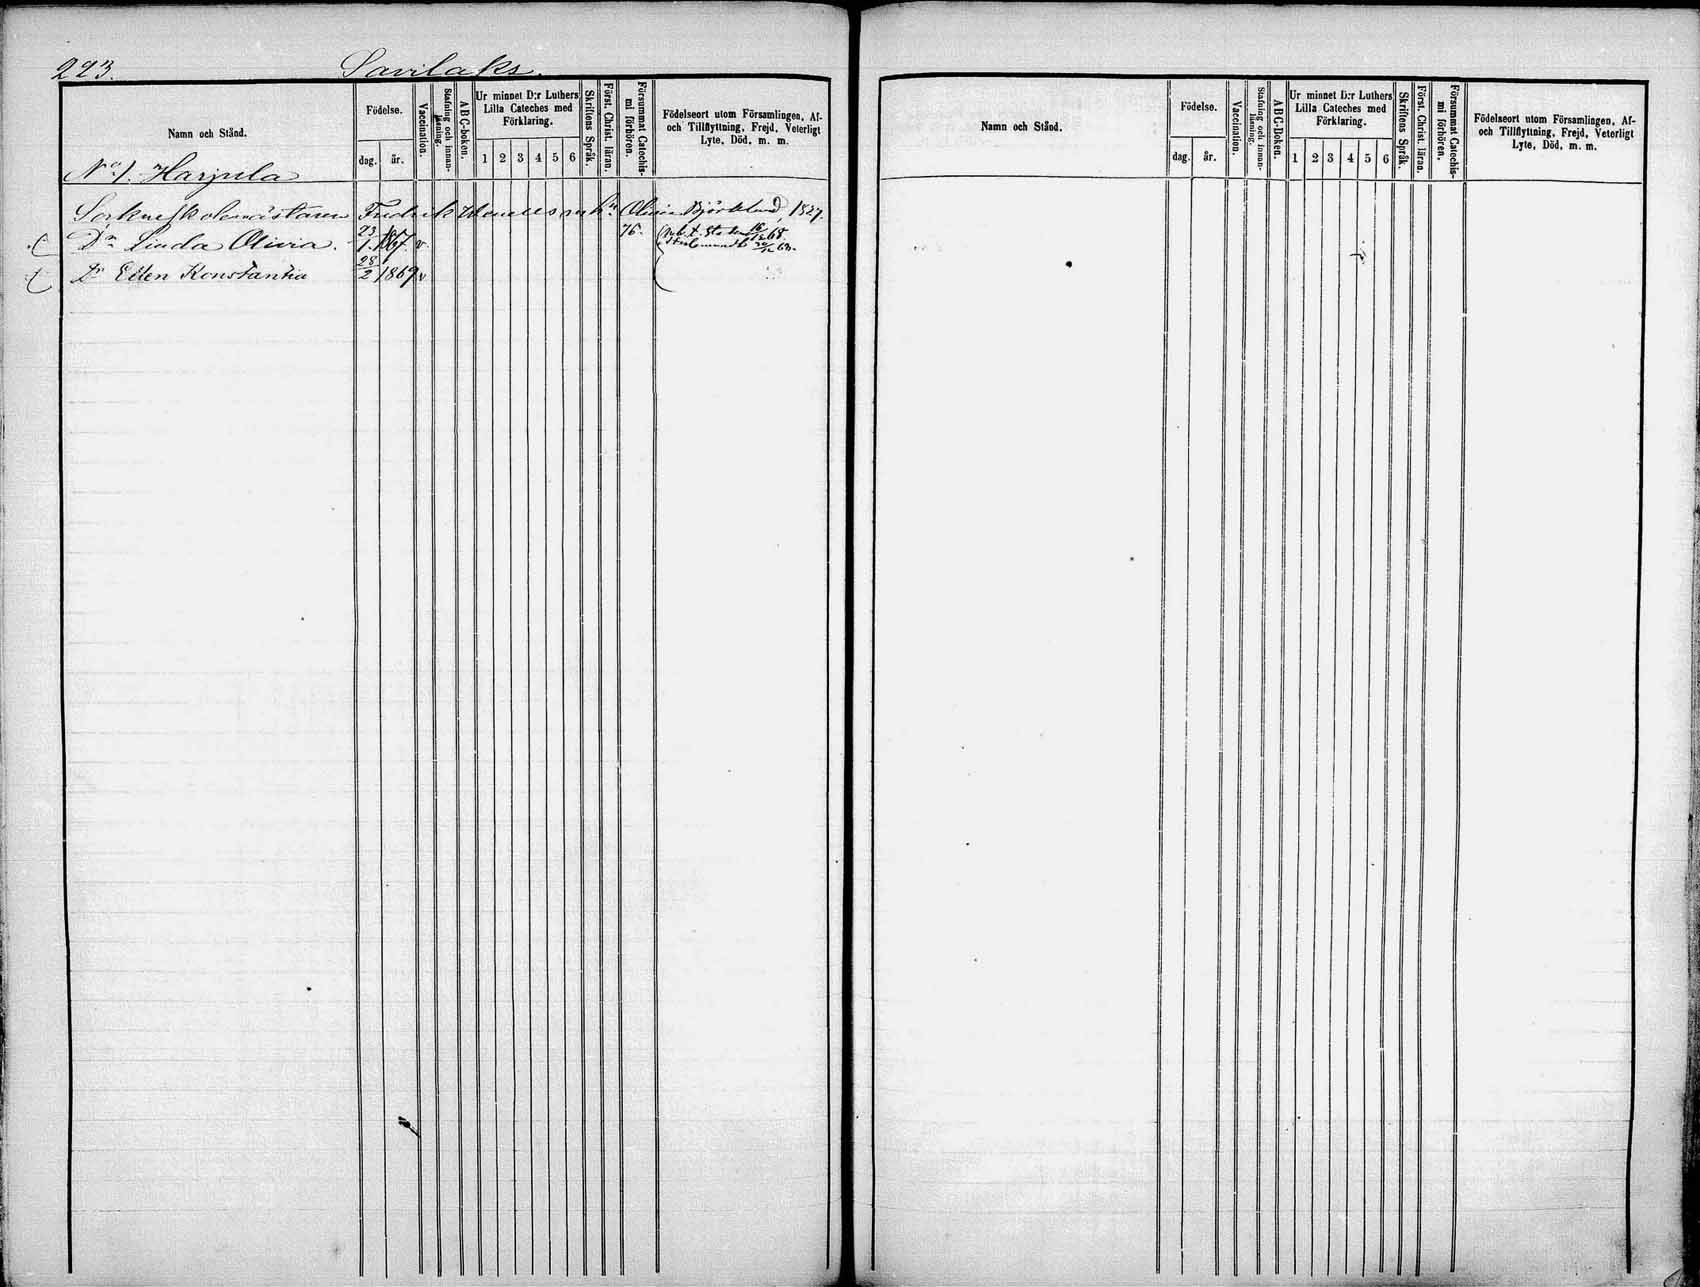 223. Savilaks.
Namn och Stånd.
Födelse.
dag. år.
Vaccination.
Stafning och innan-
läsning.
ABC-boken.
Ur minnet D:r Luthers
Lilla Cateches med
Förklaring.
1 2 3 4 5 6
Skriftens Språk.
Först. Christ. läran.
Försummat Catechis-
mi förhören.
Födelseort utom Församlingen, Af-
och Tillflyttning, Frejd, Veterligt
Lyte, Död, m. m.
No 1. Harjula
Sockneskolemästaren Fredrik Olivia Björklund 1827.
Dr Linda Olivia. 23/1 1867. v 76.
Dr Ellen Konstantia 28/2 1869 v
Namn och Stånd.
Födelse.
dag. år.
Vaccination.
Stafning och innan-
läsning.
ABC-Boken.
Ur minnet D:r Luthers
Lilla Cateches med
Förklaring.
1 2 3 4 5 6
Skriftens Språk.
Först. Christ. läran.
Försummat Catechis-
mi förhören.
Födelseort utom Församlingen, Af-
och Tillflyttning, Frejd, Veterligt
Lyte, Död, m. m.